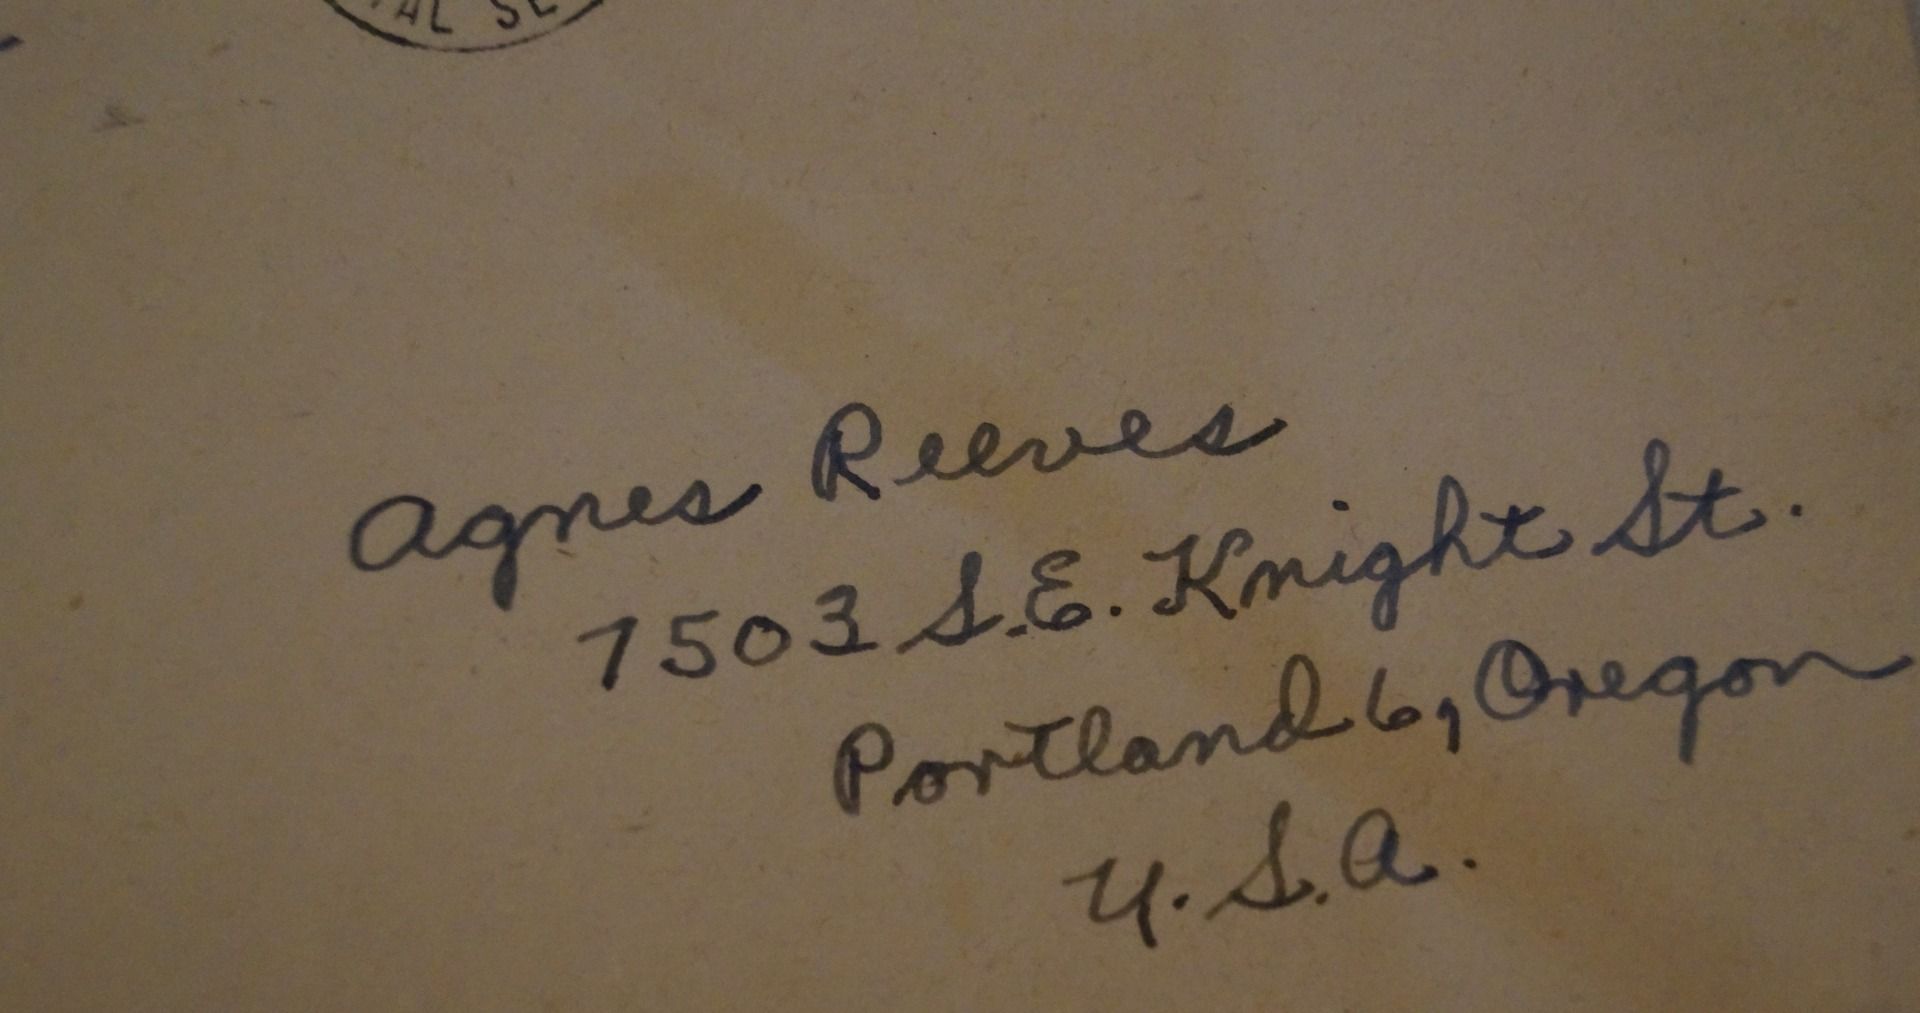 Agnes Reeves
7503 S.E. Knight St.
Portland 6, Oregon
U.S.A.